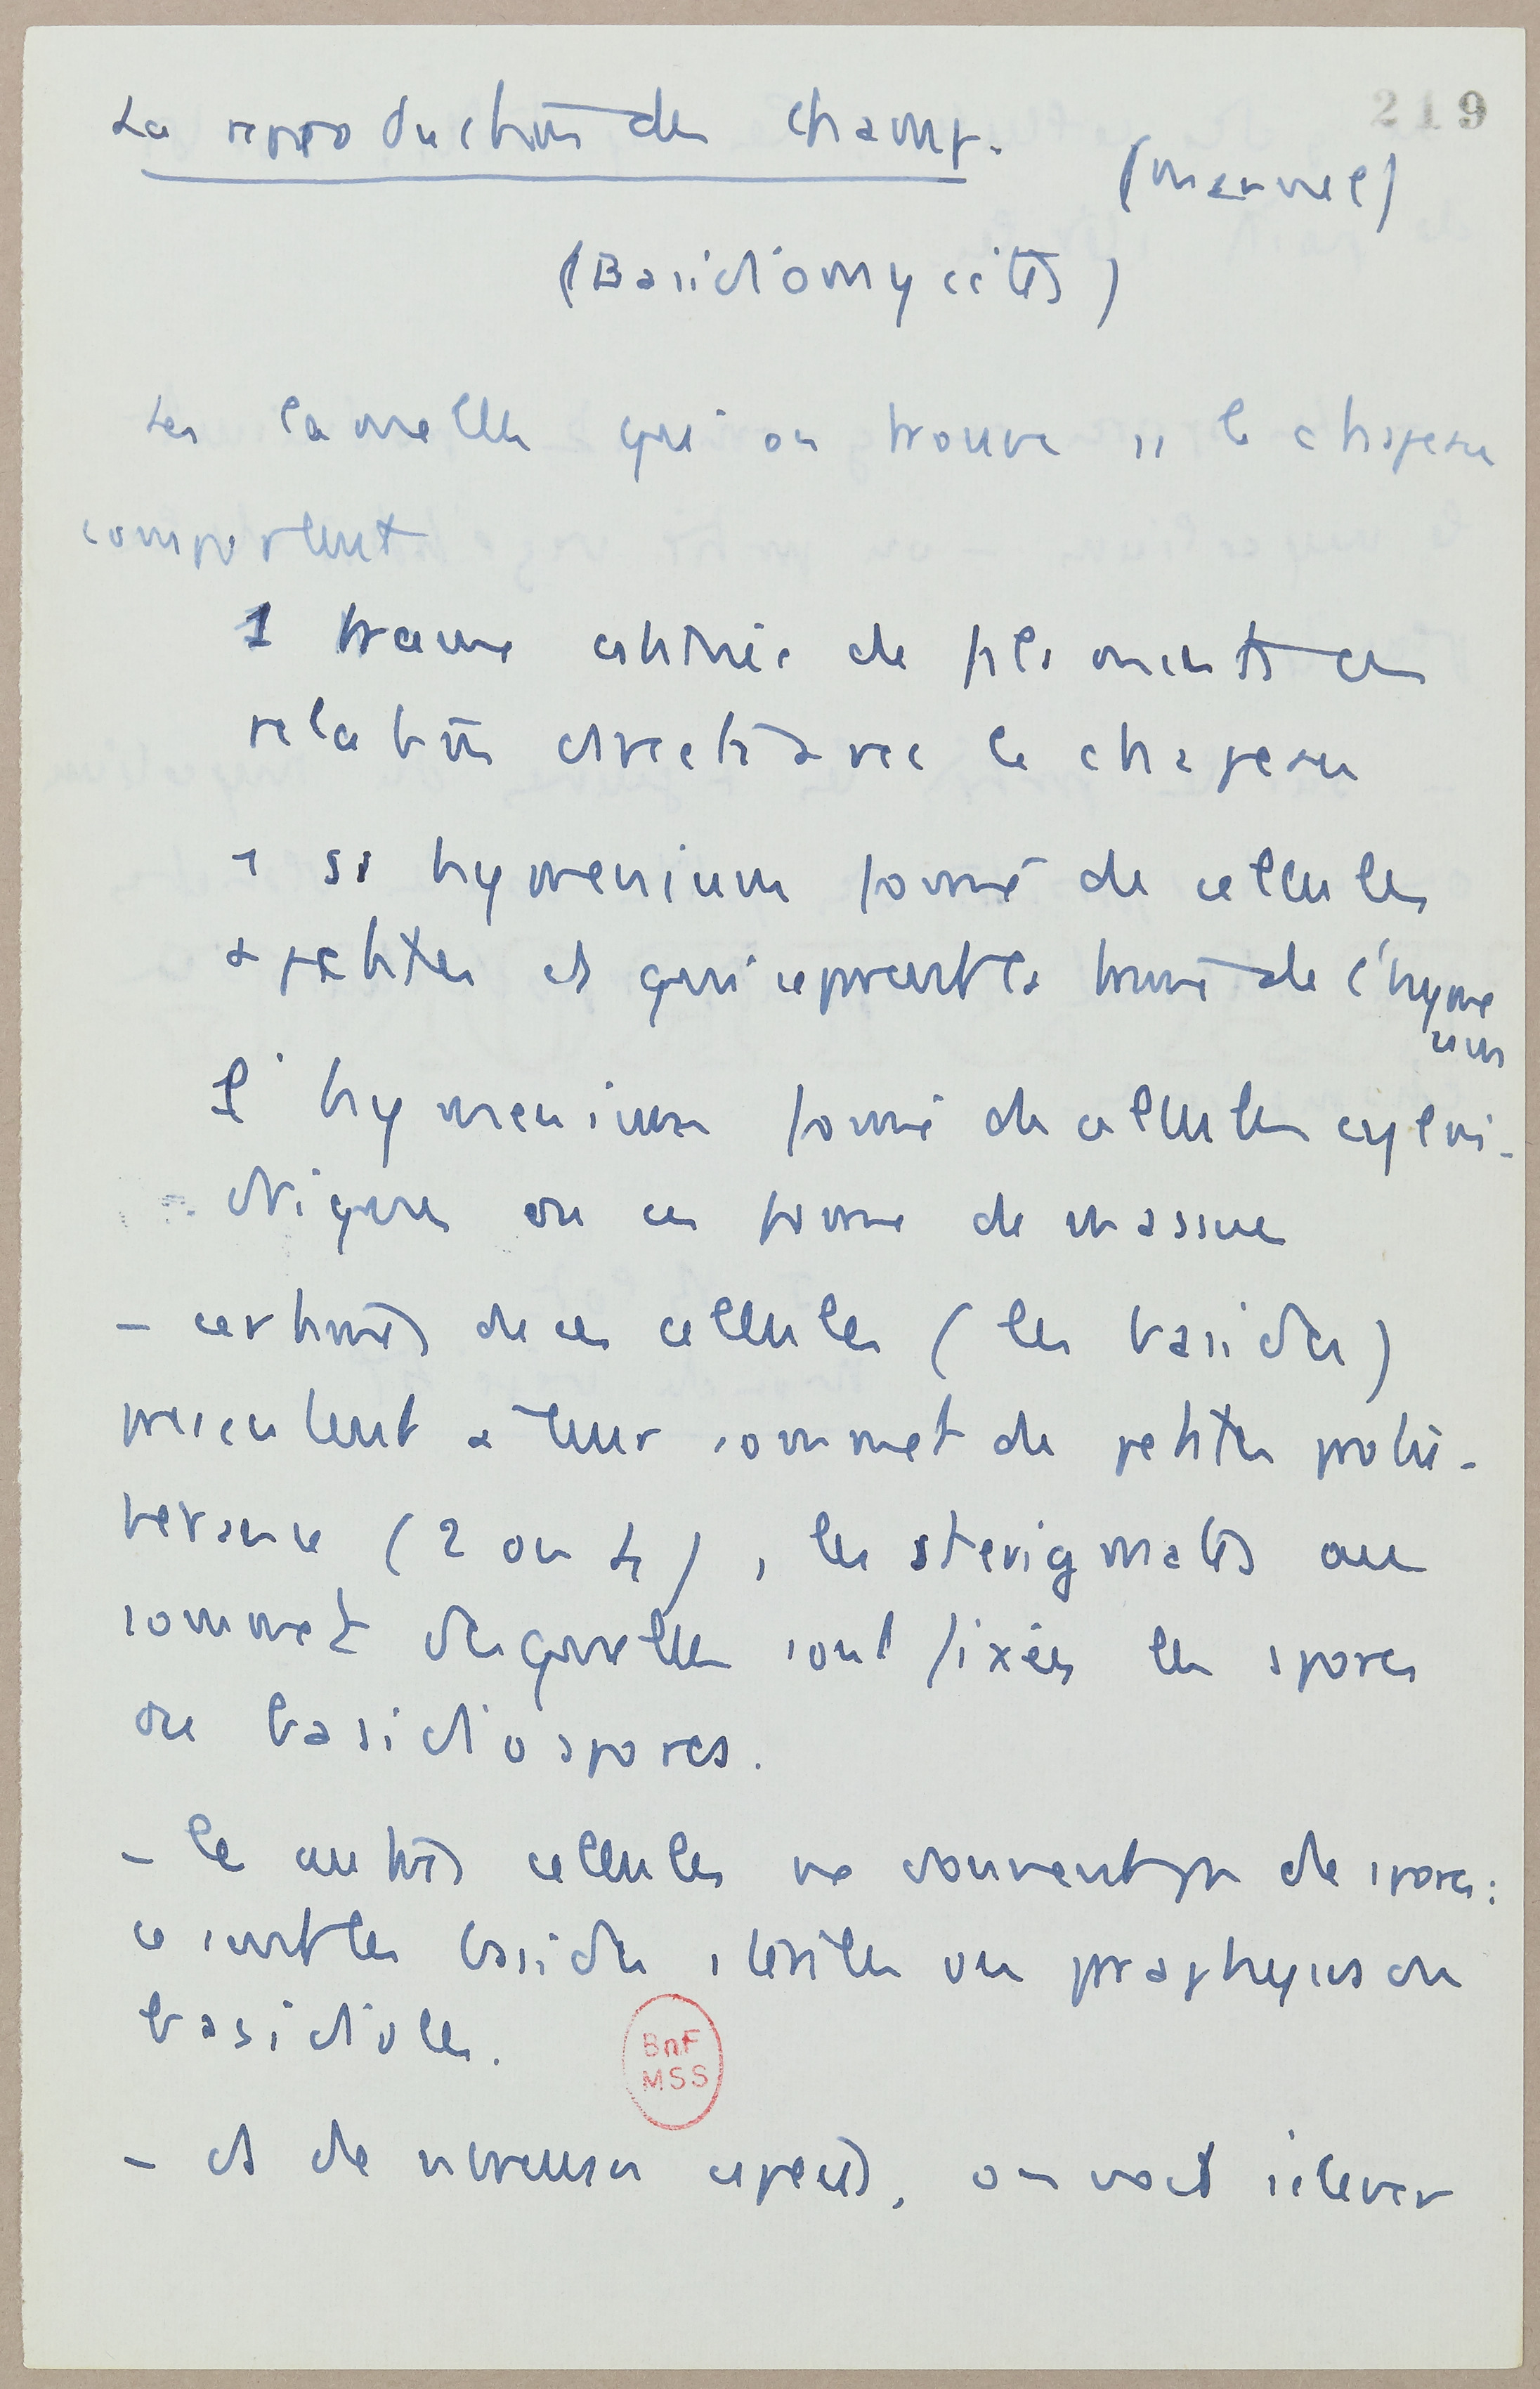 219
La reproduction des champ.
(manuel)
(Basidiomycètes)
Les lamelles qui on trouve ss le chapeau
comportent
1 trame centrale de filaments en
relation directe avec le chapeau
1 ss hymenium formé de cellules
+ petites et qui de l'hyme
nium
l' hymenium formé de cellules cylin-
driques ou en forme de massue
- certaines de ces cellules (les basides)
présentent à leur sommet de petites protu-
bérances (2 ou 4), les sterigmates au
sommet desquelles sont fixées les spores
ou basidiospores.
- les autres cellules ne donnent pas de spores:
ce sont les basides stériles ou paraphyses ou
basidioles.
BnF
MSS
- ds de nbreuses espèces, on voit s'élever